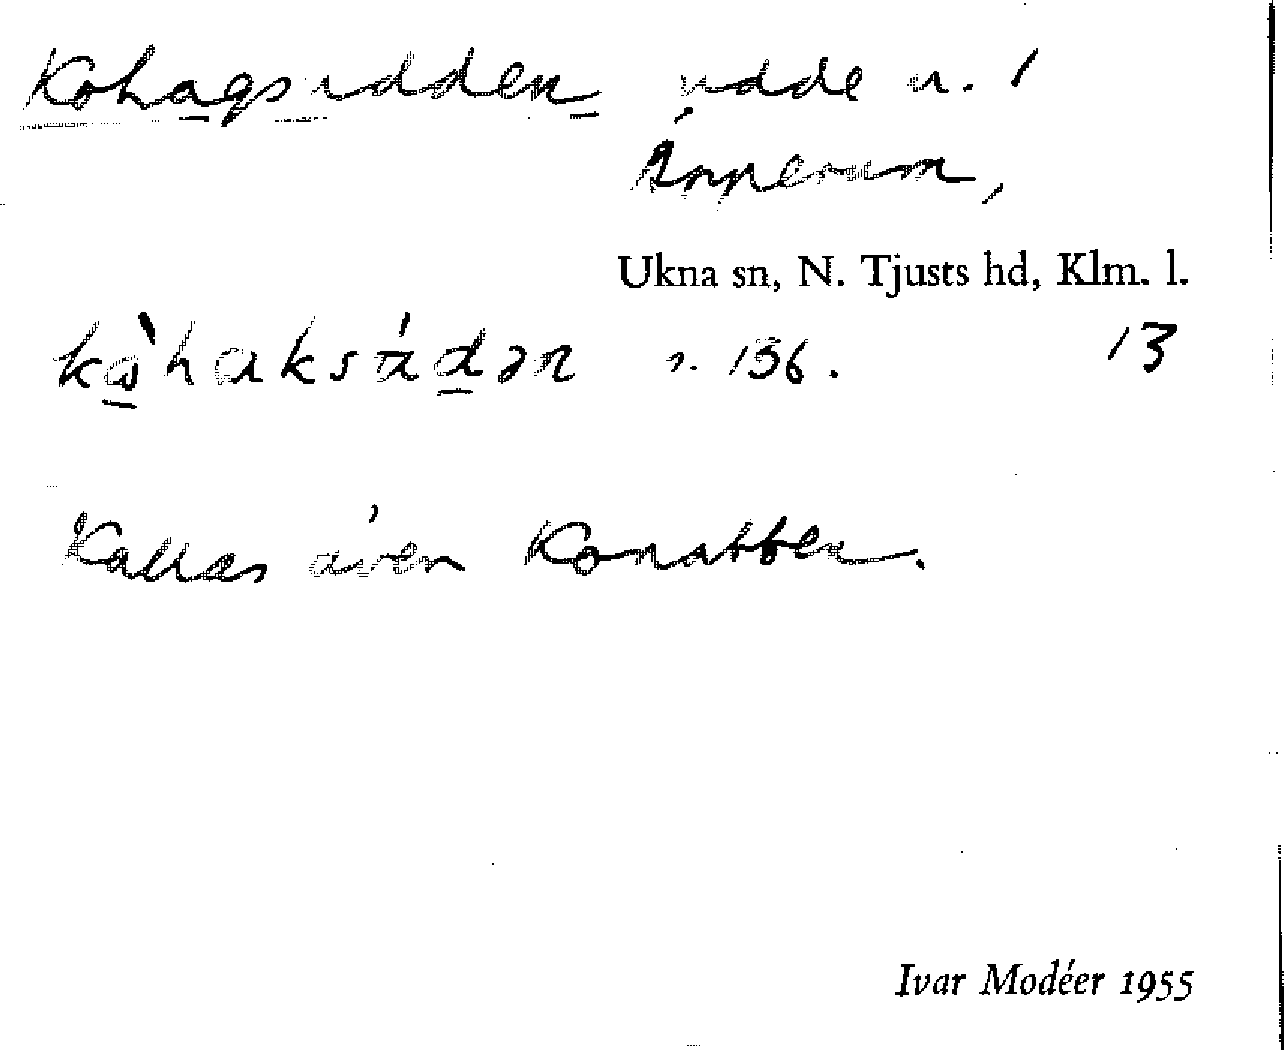 Kohagsudden udde n. 1
Ukna sn, N. Tjusts hd, Klm. l.
kòhaksúdən s. 156. 13
Kallas även Konabben.
Ivar Modéer 1955